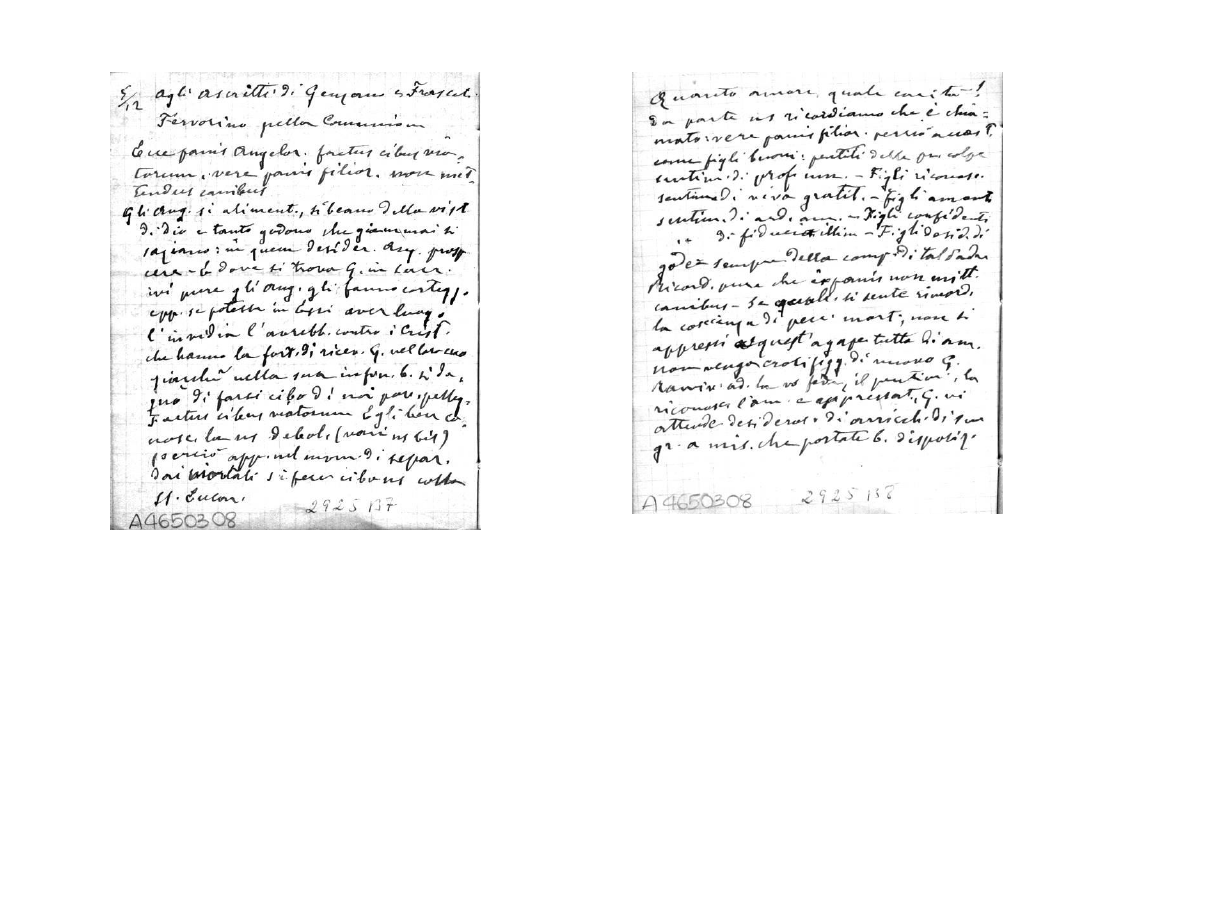 5/12 Agli ascritti di Genzano e Frascati
Fervorino pella Comunione
Ecce panis Angelor. factus cibus via-
torum, vere panis filior. non mit-
tendus canibus
Gli Ang. si aliment., si beano della vist
di dio e tanto godono che giammai si
saziano: in quem desider. Ang. prosp
cere - E dove si trova G. in sacr.
ivi pure gli Ang. gli fanno corteggi.
epp. se potesse in Essi aver luogo
l'invidia l'avrebb. contro i Crist.
che hanno la fort. di ricev. G. nel loro cuo
giacchè nella sua infin. b. si de-
gnò di farsi cibo di noi pov. pelleg.
Factus cibus viatorum Egli ben co-
nosc. la ns debol.
perciò app. nel mom. di separ.
dai mortali si fece cibo ns colla
SS. Eucar.
2925 137
A4650308
Quanto amore, quale carità!
Da parte ns ricordiamo che è chia-
mato: vere panis filior. perciò
come figli buoni: pentiti delle colpe
sentim. di prof. um. - Figli riconosc.
sentim. di viva gratit. - figli amanti
sentim. di ard. am. - Figli confidenti
,, di fiducia - Figli desid. di
goder sempre della comp. di tal Padre
Ricord. pure che è panis non mitt.
canibus - Se qualc. si sente rimord.
la coscienza di pecc. mort., non si
appressi a quest'agape tutta di am.
non venga a crocifigg. di nuovo G.
Ravviv. ad. la vs fede, il pentim., la
riconosc. l'am. e appressat. G. vi
attende desideros. di arricch. di sue
gr. a mis. che portate b. disposiz.
A4650308
2925 138